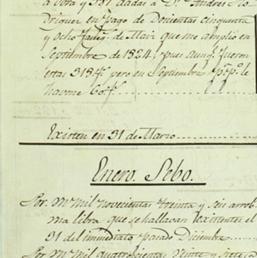 a Dora y 331 dadas a D.n Andres Ro
driguez en pago de Docientas cinquenta
y ocho fan.s de Maiz que me amplio en
Septiembre de 1824, pues aunq.e fueron
estas 318 pero en Septiembre
Existen en 31 de Marzo
Enero. Sebo.
Por M.s mil novecientas treinta y seis arrob.
una libra que se hallavan existentes el
31 del immediato pasado Diciembre
Por M.s mil quatrocientas